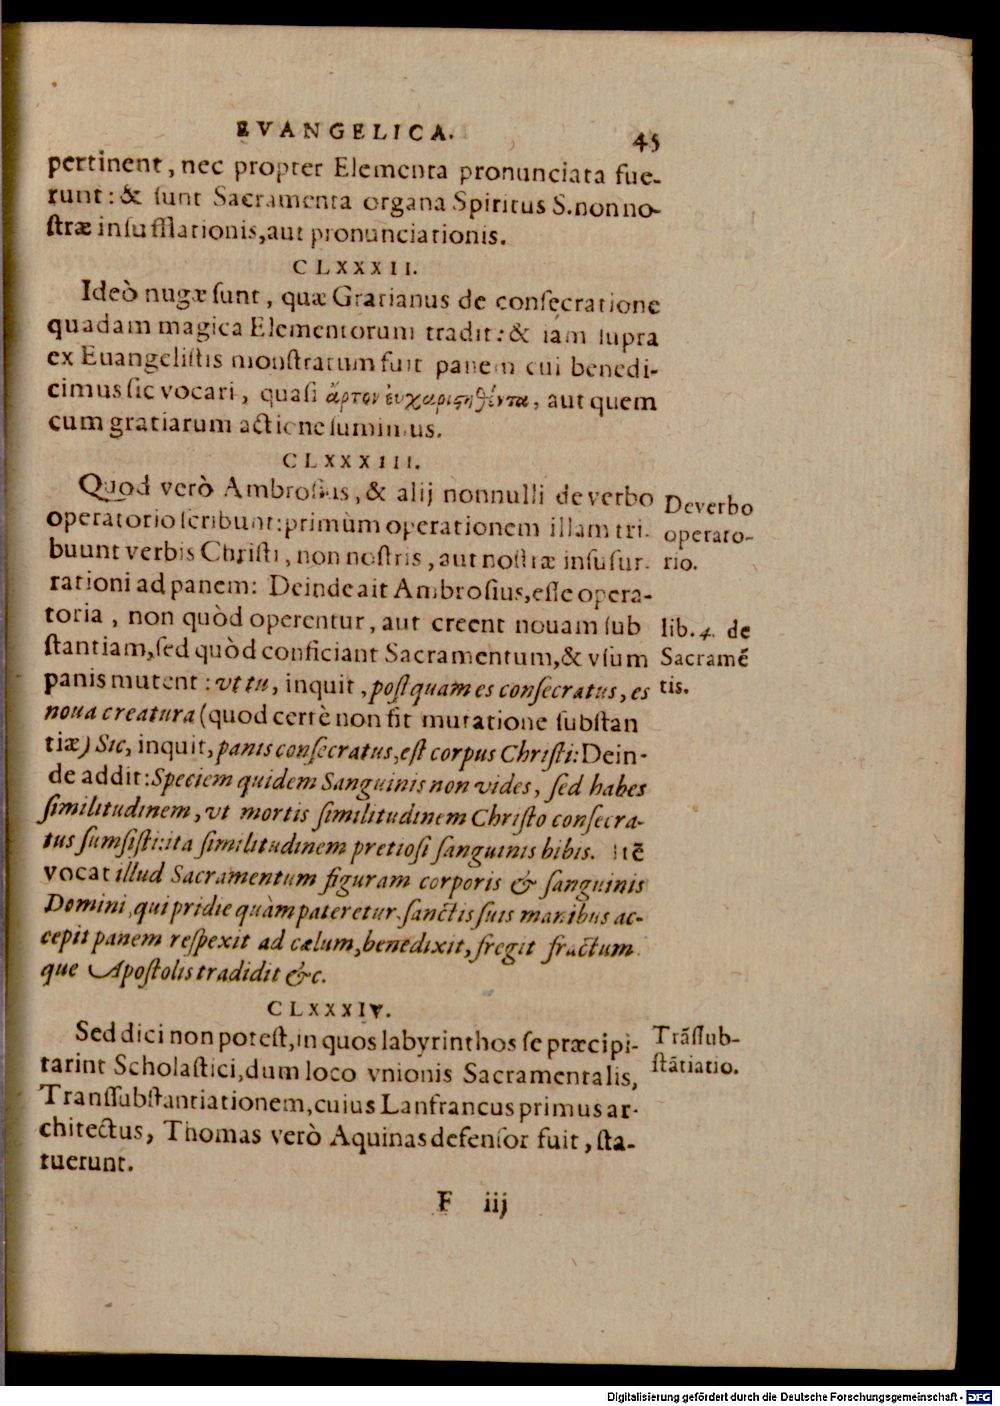 EVANGELICA. 45
pertinent, nec propter Elementa pronunciata fue-
runt: & sunt Sacramenta organa Spiritus S. non no-
stræ insufflationis, aut pronunciationis.
CLXXXII.
Ideò nugæ sunt, quæ Gratianus de consecratione
quadam magica Elementorum tradit: & iam supra
ex Euangelistis monstratum fuit panem cui benedi-
cimus sic vocari, quasi ἄρτον ἐυχαριστηθέντα, aut quem
cum gratiarum actione sumimus.
CLXXXIII.
Quod verò Ambrosius, & alij nonnulli de verbo
operatorio scribunt: primùm operationem illam tri-
buunt verbis Christi, non nostris, aut nostræ insusur-
rationi ad panem: Deinde ait Ambrosius, esse opera-
toria, non quòd operentur, aut creent nouam sub
stantiam, sed quòd conficiant Sacramentum, & vsum
panis mutent: vt tu, inquit, postquam es consecratus, es
noua creatura (quod certè non fit mutatione substan
tiæ) Sic, inquit, panis consecratus, est corpus Christi: Dein-
de addit: Speciem quidem Sanguinis non vides, sed habes
similitudinem, vt mortis similitudinem Christo consecra-
tus sumsisti: ita similitudinem pretiosi sanguinis bibis. Itẽ
vocat illud Sacramentum figuram corporis & sanguinis
Domini, qui pridie quàm pateretur, sanctis suis manibus ac-
cepit panem respexit ad cælum, benedixit, fregit fractum
que Apostolis tradidit &c.
De verbo
operato-
rio.
lib. 4. de
Sacramẽ
tis.
CLXXXIV.
Sed dici non potest, in quos labyrinthos se præcipi-
tarint Scholastici, dum loco vnionis Sacramentalis,
Transsubstantiationem, cuius Lanfrancus primus ar-
chitectus, Thomas verò Aquinas defensor fuit, sta-
tuerunt.
Trãssub-
stãtiatio.
F iij
Digitalisierung gefördert durch die Deutsche Forschungsgemeinschaft - DFG